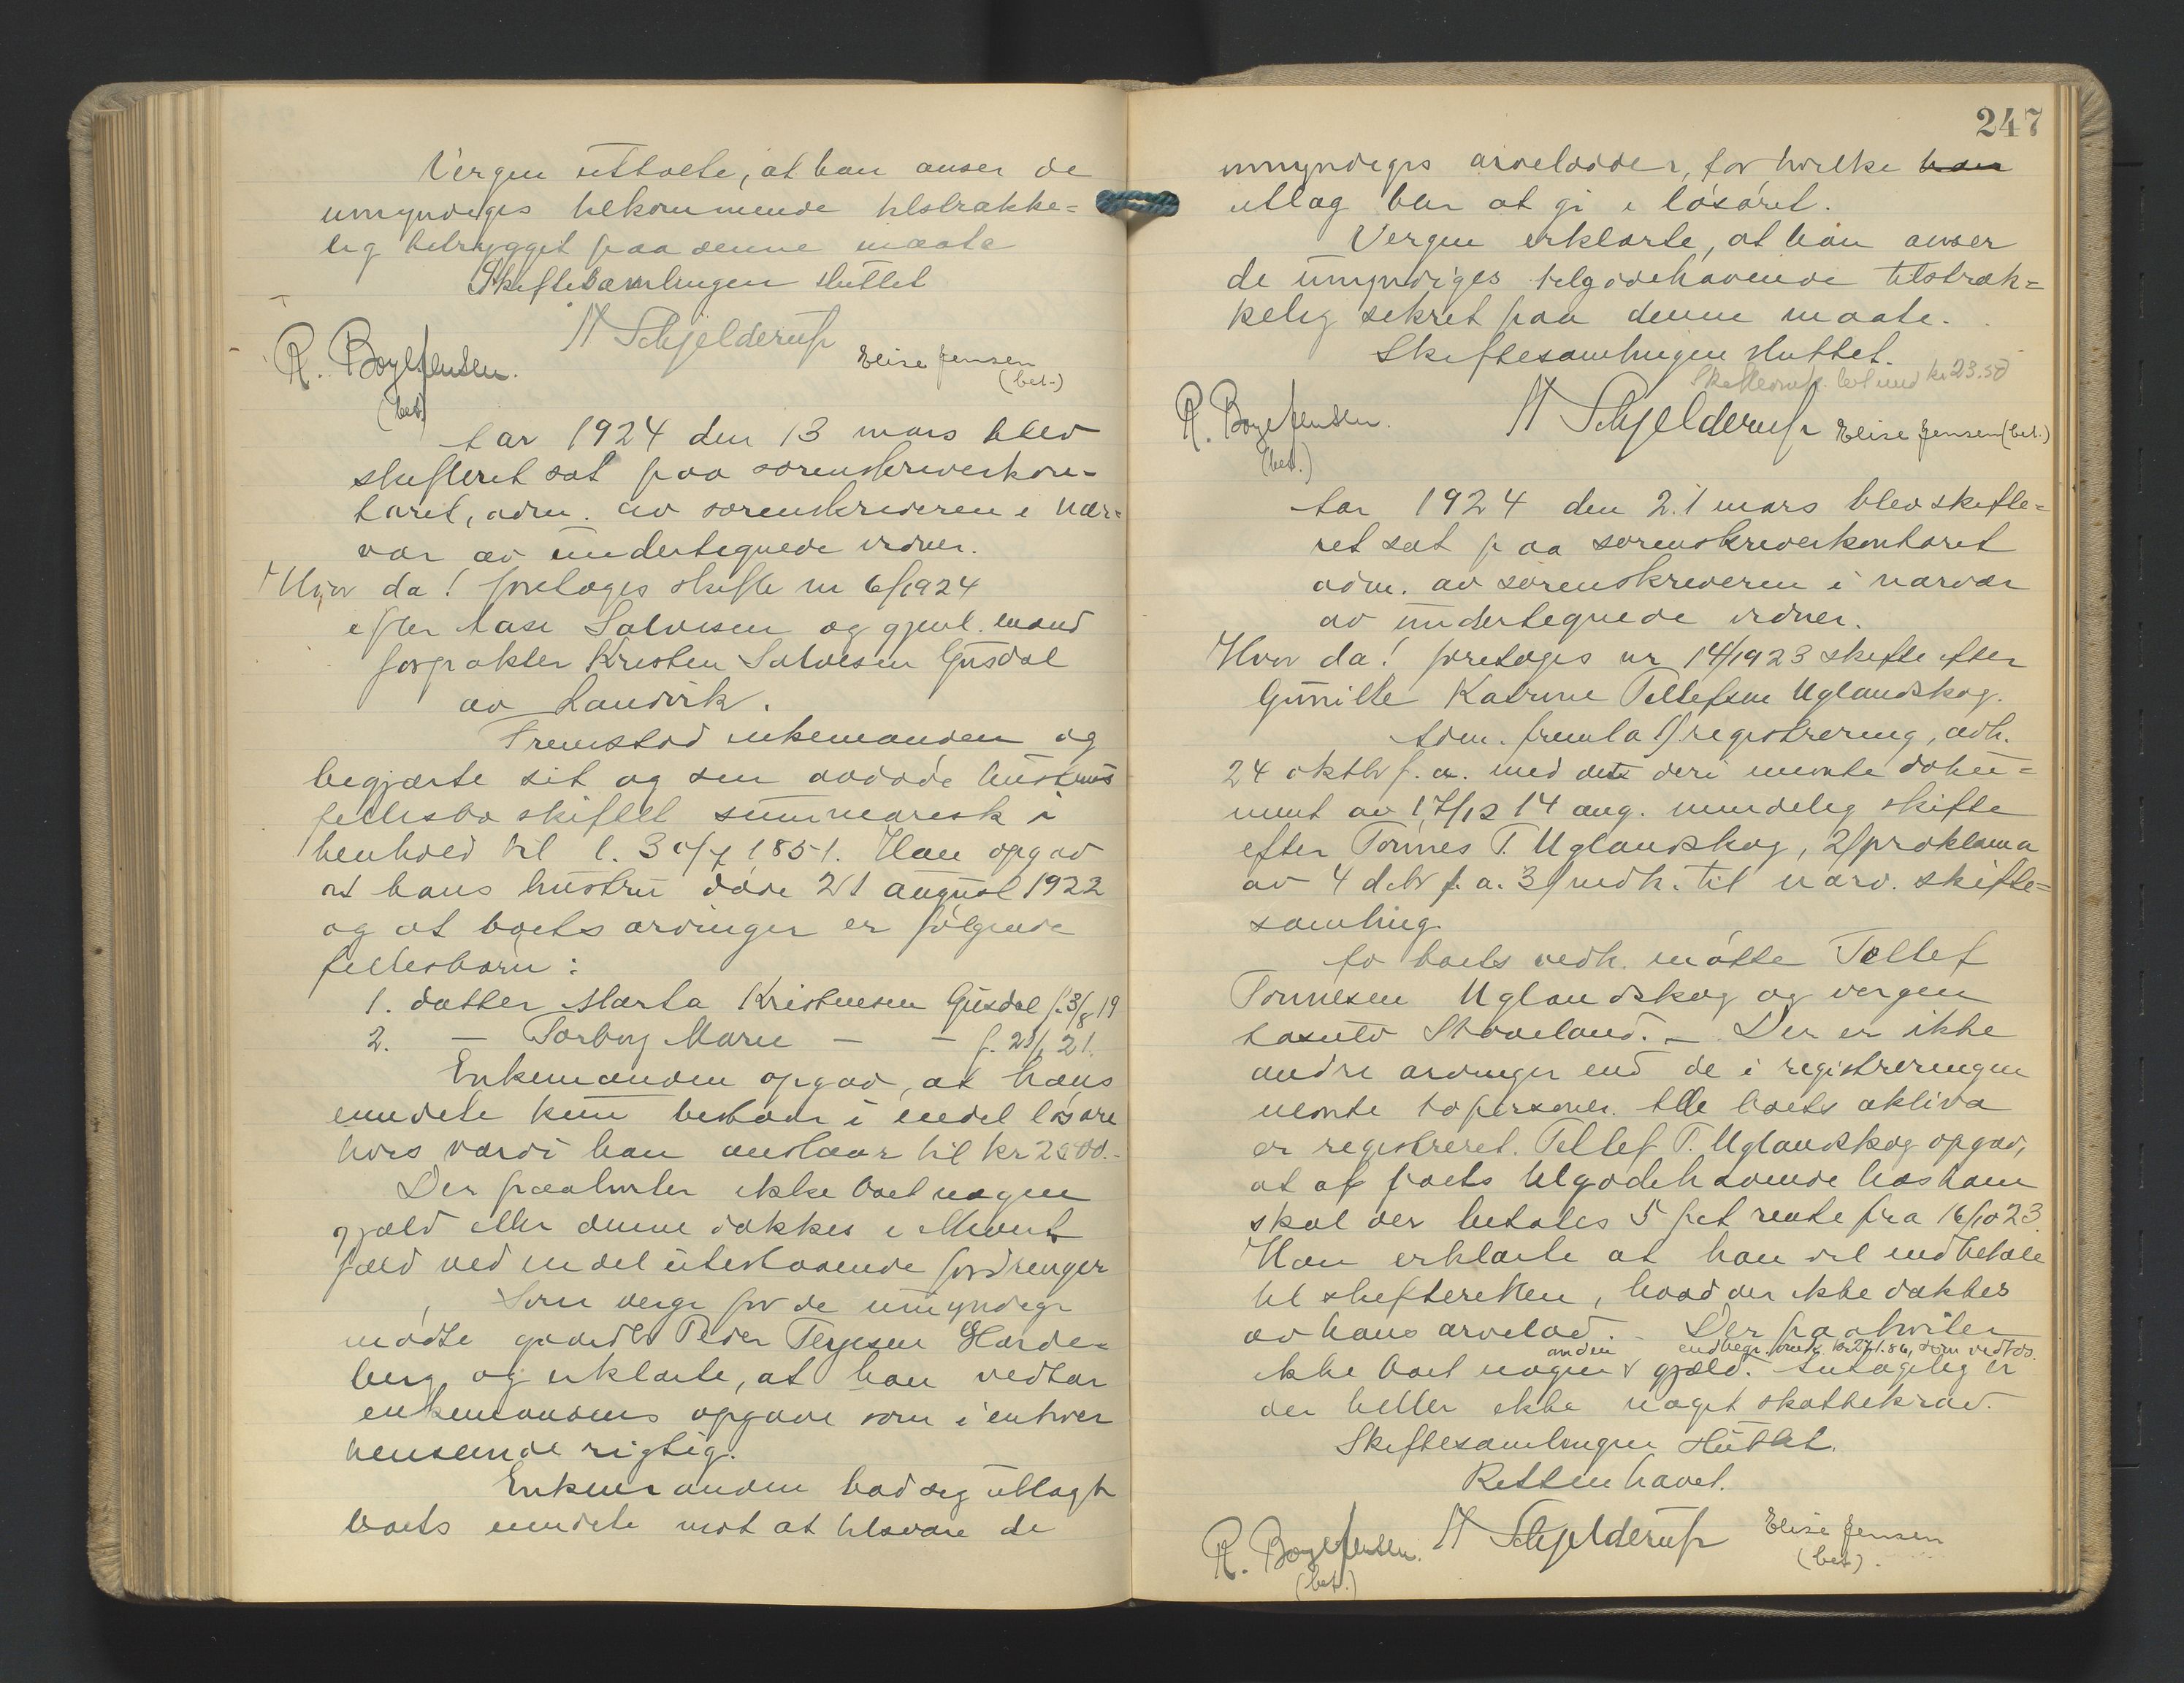 Vergen uttalte, at han anser de
umyndiges tilkommende tilstrække=
lig betrygget paa denne maate
Skiftesamlingen sluttet
A Schjelderup
R. Boyejensen.
(bet)
Elise Jensen
(bet.)
Aar 1924 den 13 mars blev
skifteret sat paa sorenskriverkon-
toret, adm. av sorenskriveren i nær=
vær av undertegnede vidner.
Hvor da! foretoges skifte nr 6/1924
efter Aase Salvesen og gjenl. mand
forpakter Kristen Salvesen Gusdal
av Landvik.
Fremstod enkemanden og
begjærte sit og sin avdøde hustrus
fellesbo skiftet summarisk i
henhold til l. 30/7 1851. Han opgav
at hans hustru døde 21 august 1922
og at boets arvinger er følgende
fellesbarn:
1. datter Marta Kristensen Gusdal f. 3/8 19
2. — Torborg Marie — — f. 21.
Enkemanden opgav, at hans
eiendele kun bestaar i endel løsøre
hvis værdi han anslaar til kr 2500.-
Der paahviler ikke boet nogen
gjæld eller denne dækkes i tilfæld
ved endel utestaaende fordringer
Som verge for de umyndige
mødte gaardbr Peder Terjesen Harde=
berg og erklærte, at han vedtar
enkemandens opgave som i enhver
henseende rigtig.
Enkemanden bad sig utlagt
boets eiendele mot at tilsvare de
247
umyndiges arvelodder, for hvilke han
utlæg ber at gi i løsøret.
Vergen erklærte, at han anser
de umyndiges tilgodehavende tilstræk=
kelig sikret paa denne maate.
Skiftesamlingen sluttet.
kr 23.50
R. Boyejensen.
(bet.)
A Schjelderup
Elise Jensen (bet.)
Aar 1924 den 21 mars blev skifte=
ret sat paa sorenskriverkontoret
adm. av sorenskriveren i nærvær
av undertegnede vidner.
Hvor da! foretoges nr 14/1923 skifte efter
Gunille Katrine Tellefsen Uglandskog.
Adm. fremla 1/ registrering, avh.
24 oktbr f. a. med det deri nevnte doku=
ment av 14 aug. mindelig skifte
efter Tønnes T. Uglandskog, 2/ proklama
av 4 dcbr f. a. 3/ medh. til nærv. skifte=
samling.
For boets vedk. møtte Tellef
Tønnesen Uglandskog og vergen
Aasulv Stoveland. – Der er ikke
andre arvinger end de i registreringen
nevnte to personer. Alle boets aktiva
er registreret. Tellef T. Uglandskog opgav,
at af boets tilgodehavende hos ham
skal der betales 5 pct rente fra 16/10 23.
Han erklærte at han vil indbetale
til skifteretten, hvad der ikke dækkes
av hans arvelod. – Der paahviler
anden
endbegr. omk. kr 271.86, som vedtos.
ikke boet nogen gjæld. Antagelig er
der heller ikke noget skattekrav.
Skiftesamlingen sluttet.
Retten hævet.
R. Boyejensen.
(bet.)
A Schjelderup
Elise Jensen
(bet).